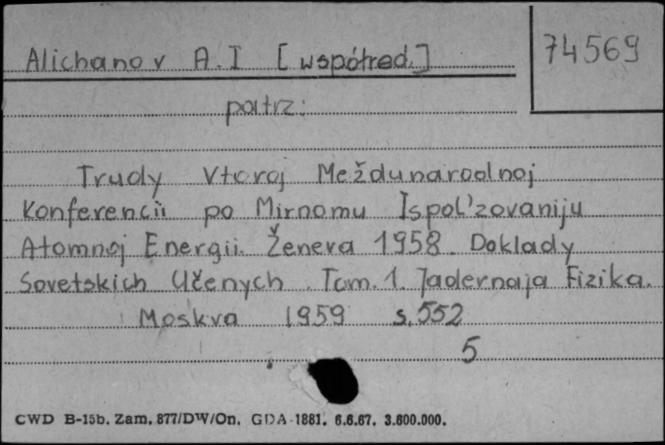 Alichanov A.I [współred.]
74569
patrz:
Trudy Vtoroj Meždunarodnoj
Konferencii po Mirnomu Ispol'zovaniju
Atomnoj Energii. Ženeva 1958. Doklady
Sovetskich Učenych. Tom. 1. Jadernaja Fizika.
Moskva 1959 s. 552
5
CWD B-15b. Zam. 877/DW/On. GDA-1881. 6.6.67. 3.600.000.